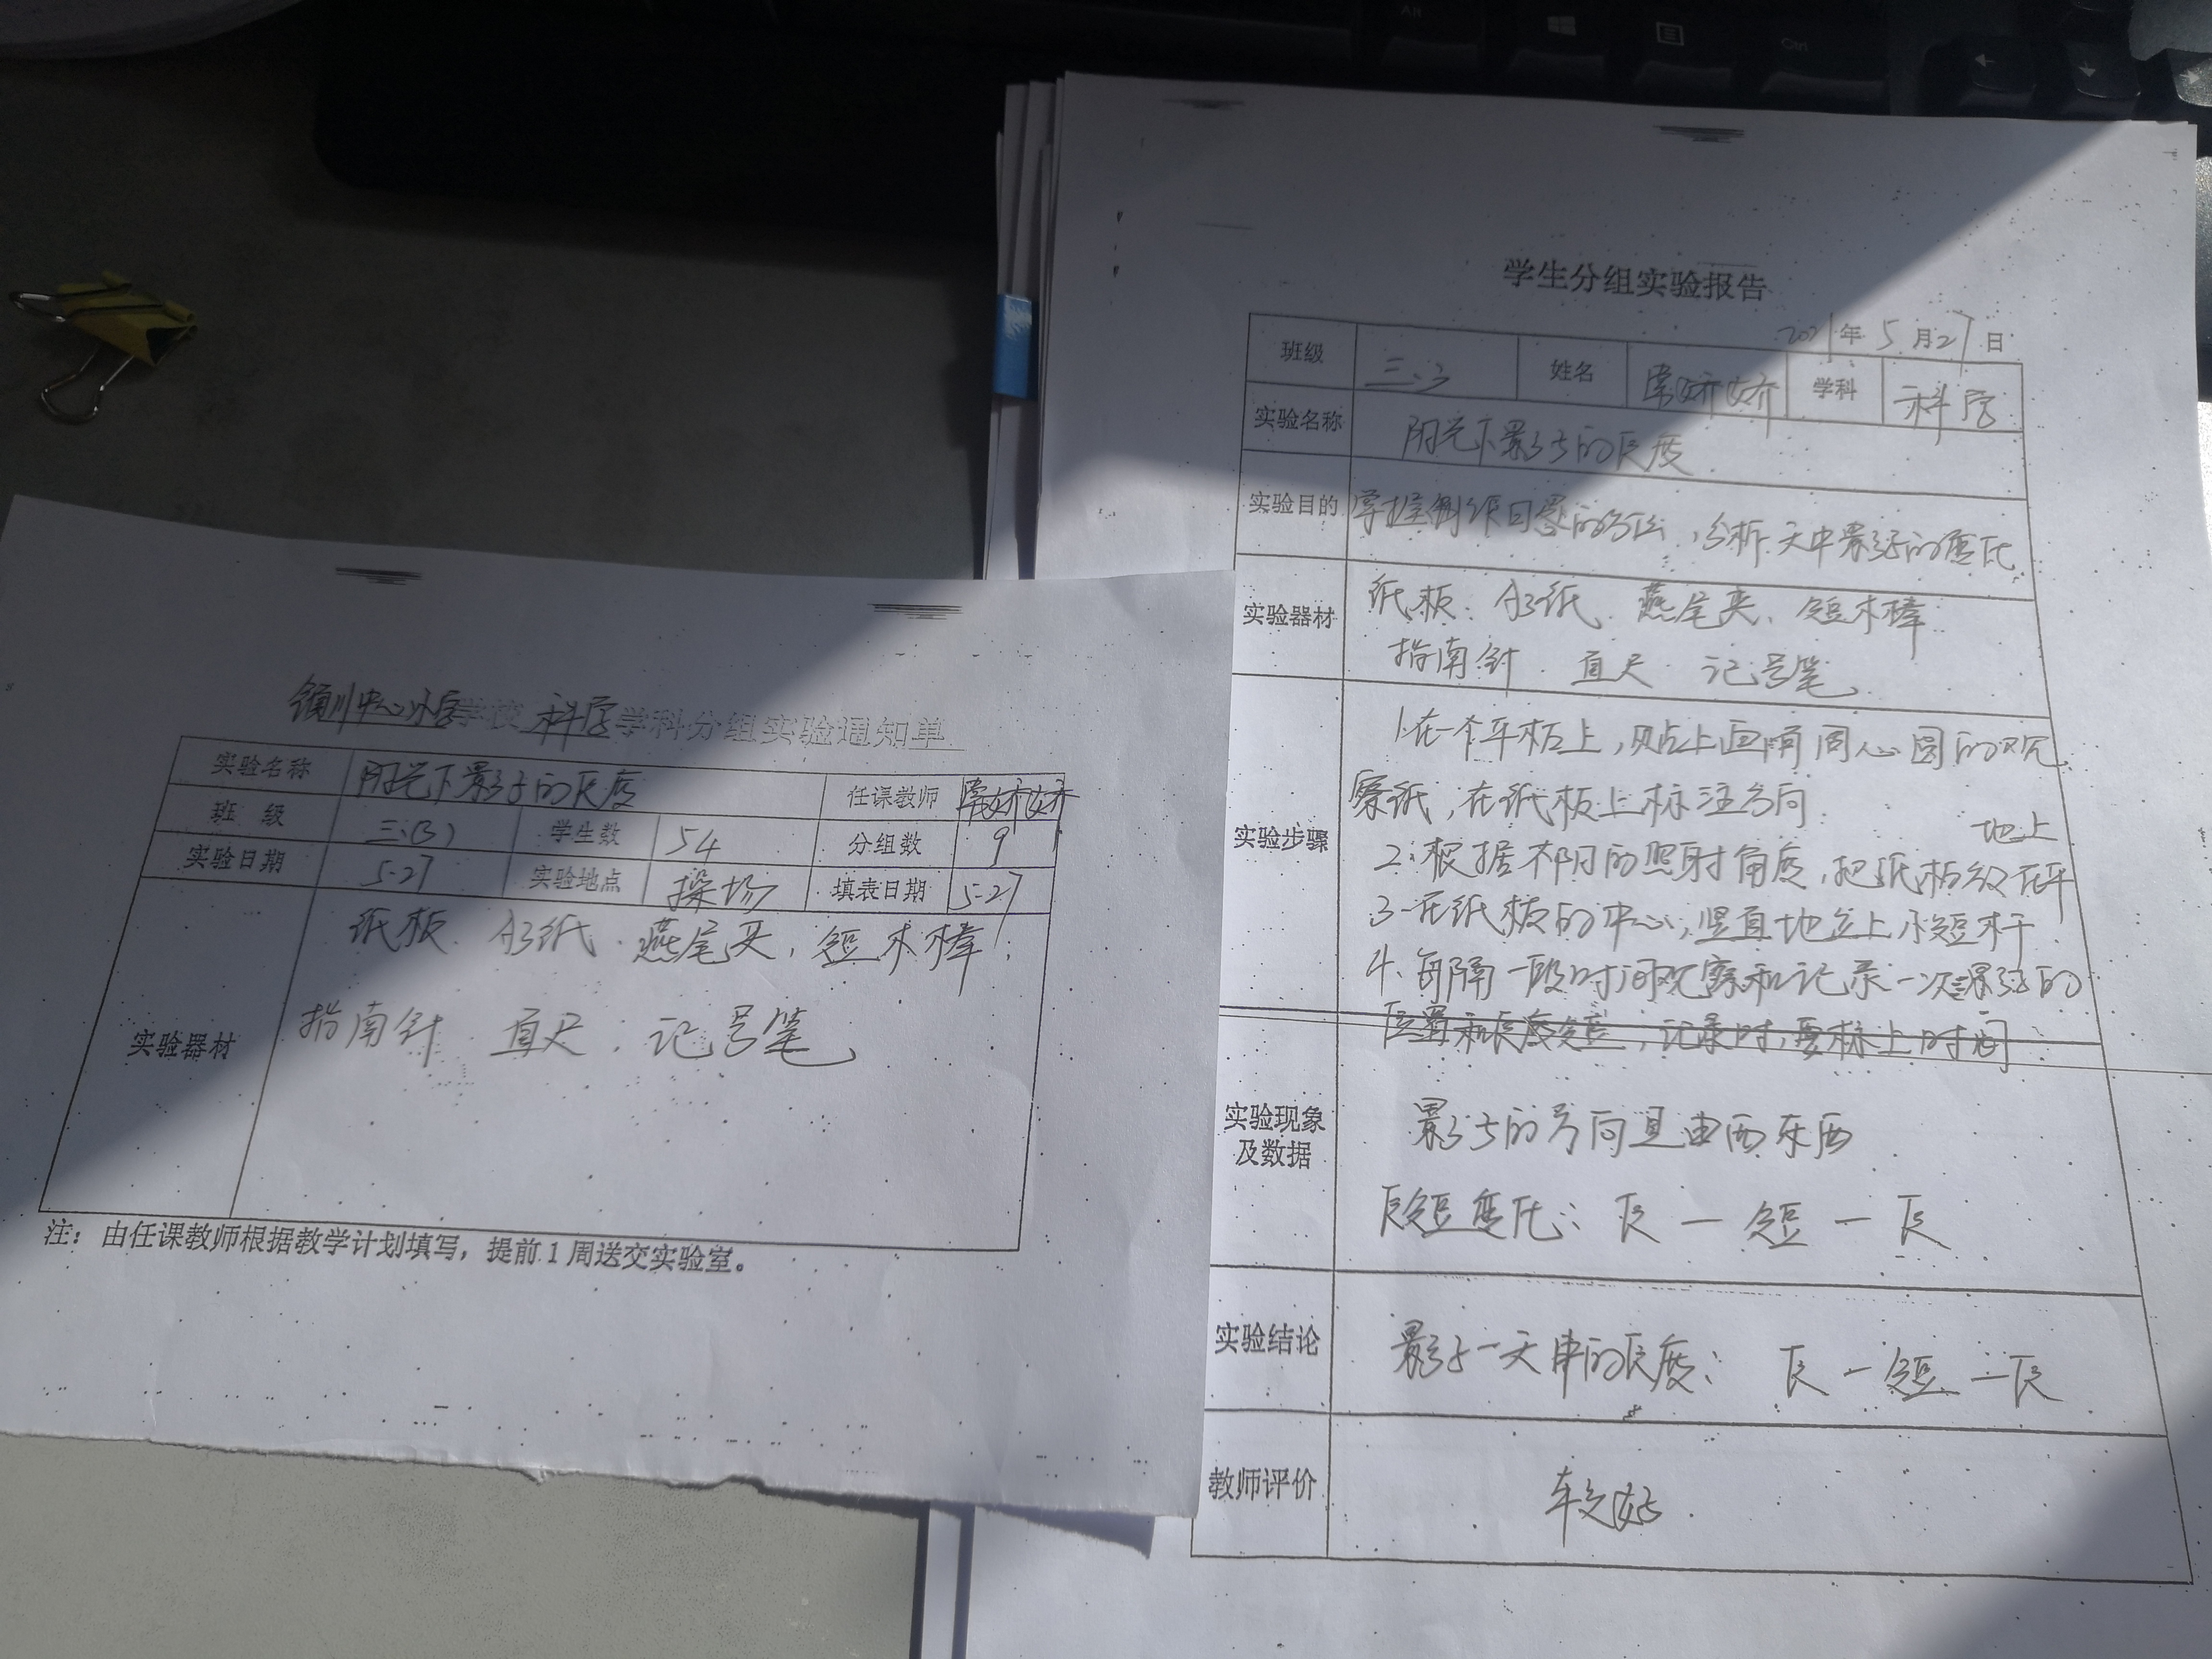 中心小学学校 科学学科分组实验通知单
实验名称 阳光下影子的长度 任课教师 常娇娇
班 级 三.(3) 学生数 54 分组数 9
实验日期 5.27 实验地点 操场 填表日期 5.27
实验器材
纸板、A3纸、燕尾夹、短木棒、
指南针 直尺、记号笔
注：由任课教师根据教学计划填写，提前1周送交实验室。
学生分组实验报告
2021年5月27日
班级 三.3 姓名 常娇娇 学科 科学
实验名称 阳光下影子的长度
实验目的 掌握制作日晷的方法，分析一天中影子的变化
实验器材 纸板、A3纸、燕尾夹、短木棒
指南针、直尺、记号笔
实验步骤
1.在一个平板上，贴上画有同心圆的观
察纸，在纸板上标注方向.
2.根据不同的照射角度，把纸板放在平
地上
3.在纸板的中心，竖直地立上小短杆
4.每隔一段时间观察和记录一次影子的
位置和长度，记录时，要标上时间
实验现象
及数据
影子的方向是由西东西
长短变化：长—短—长
实验结论 影子一天中的长度：长—短—长
教师评价 较好
Alt
Ctrl